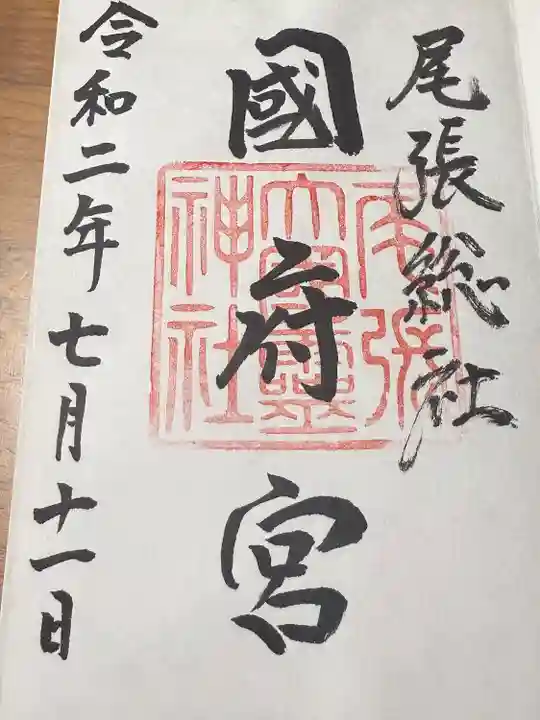 尾張総社
國府宮
令和二年七月十一日
尾張
大國霊
神社